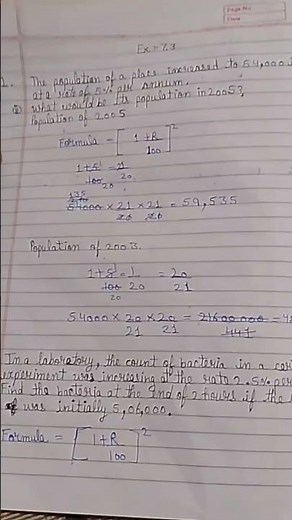 Page No.
Date
Ex = 7.3
1. The population of a place increased to 54,000 i
at a rate of 5% per annum.
① what would be its population in 2005?
Population of 2005
Formula = [1+R/100]²
1+5/100 = 21/20
54000 × 21/20 × 21/20 = 59,535
Population of 2003.
1+5/100 = 1/20 = 20/21
54000 × 20/21 × 20/21 = 21600 000/441 = 4
In a laboratory, the count of bacteria in a cer
experiment was increasing at the rate 2.5% per
Find the bacteria at the end of 2 hours if the
was initially 5,06,000.
Formula = [1+R/100]²